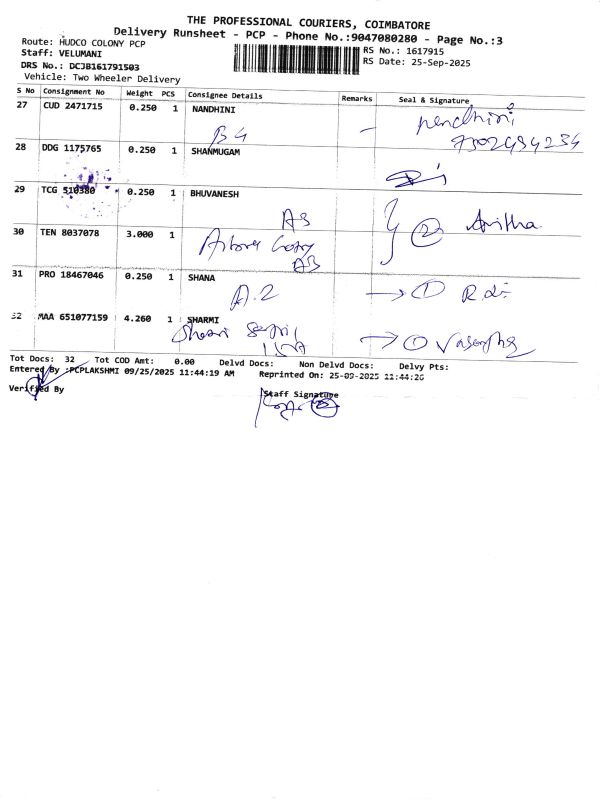 THE PROFESSIONAL COURIERS, COIMBATORE
Delivery Runsheet - PCP - Phone No.:9047080280 - Page No.:3
Route: HUDCO COLONY PCP
RS No.: 1617915
Staff: VELUMANI
RS Date: 25-Sep-2025
DRS No.: DCJB161791503
Vehicle: Two Wheeler Delivery
S No Consignment No Weight PCS Consignee Details Remarks Seal & Signature
27 CUD 2471715 0.250 1 NANDHINI
B4
28 DDG 1175765 0.250 1 SHANMUGAM
29 TCG 510380 0.250 1 BHUVANESH
A3
2 Anitha
30 TEN 8037078 3.000 1
A3
31 PRO 18467046 0.250 1 SHANA
A.2 → 1
32 MAA 651077159 4.260 1 SHARMI
→ 1
Tot Docs: 32 Tot COD Amt: 0.00 Delvd Docs: Non Delvd Docs: Delvy Pts:
Entered By :PCPLAKSHMI 09/25/2025 11:44:19 AM Reprinted On: 25-09-2025 11:44:26
Verified By
Staff Signature